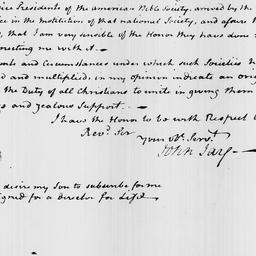 ice Presidents of the american Bible Society, arrived by the
ice in the Institution of that national Society, and assure
that I am very sensible of the Honor they have done
necting me with it. —
and Circumstances under which such Societies h
d and multiplied, in my opinion indicate an
the Duty of all Christians to unite in giving them
and zealous Support. —
I have the Honor to be with Respect
Revd. Sir
your obt. Servt.
John Jay —
desire my Son to subscribe for me
signed for a Director for Life